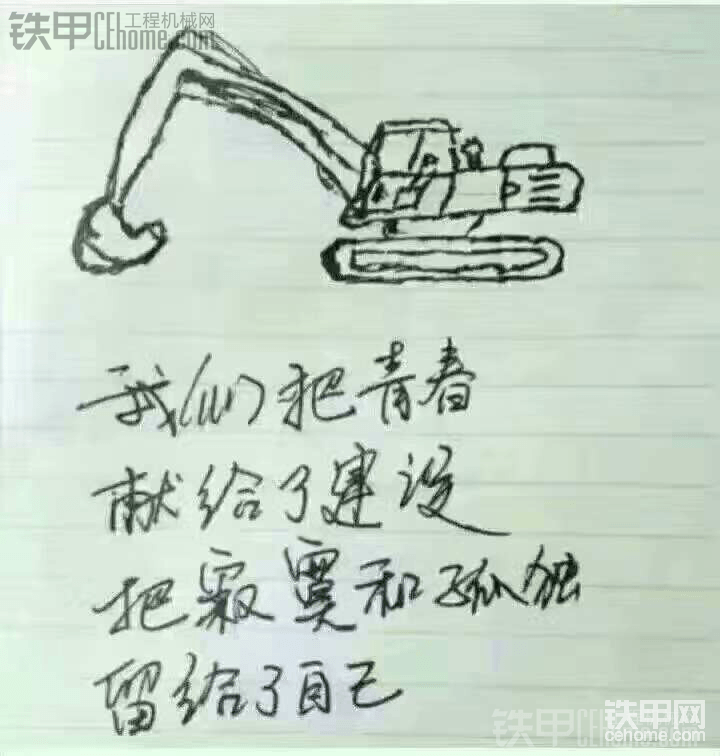 铁甲 工程机械网
CEhome.com
我们把青春
献给了建设
把寂寞和孤独
留给了自己
铁甲网
cehome.com